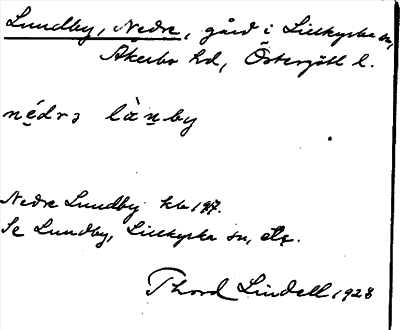 Lundby, Nedre, gård i Lillkyrka sn,
Åkerbo hd, Östergötl l.
nédrə làn̥by
Nedre Lundby kb 197.
Se Lundby, Lillkyrka sn,
Thord Lindell 1928